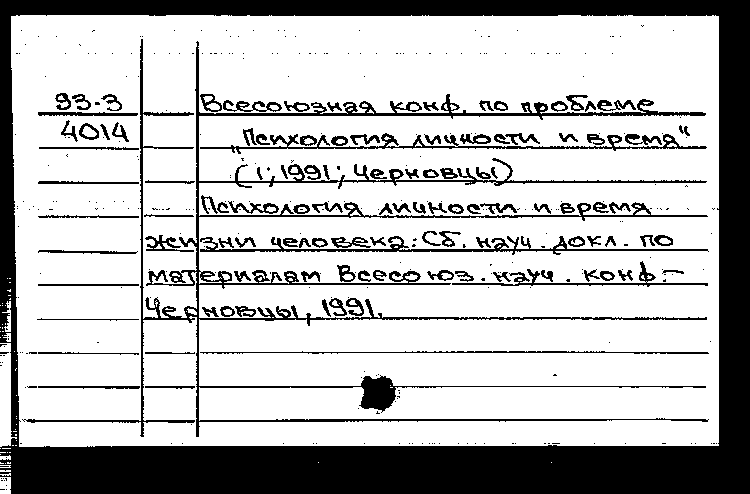 93-3 Всесоюзная конф. по проблеме
4014 „Психология личности и время"
(1; 1991; Черновцы)
Психология личности и время
жизни человека: Сб. науч. докл. по
материалам Всесоюз. науч. конф.-
Черновцы, 1991.